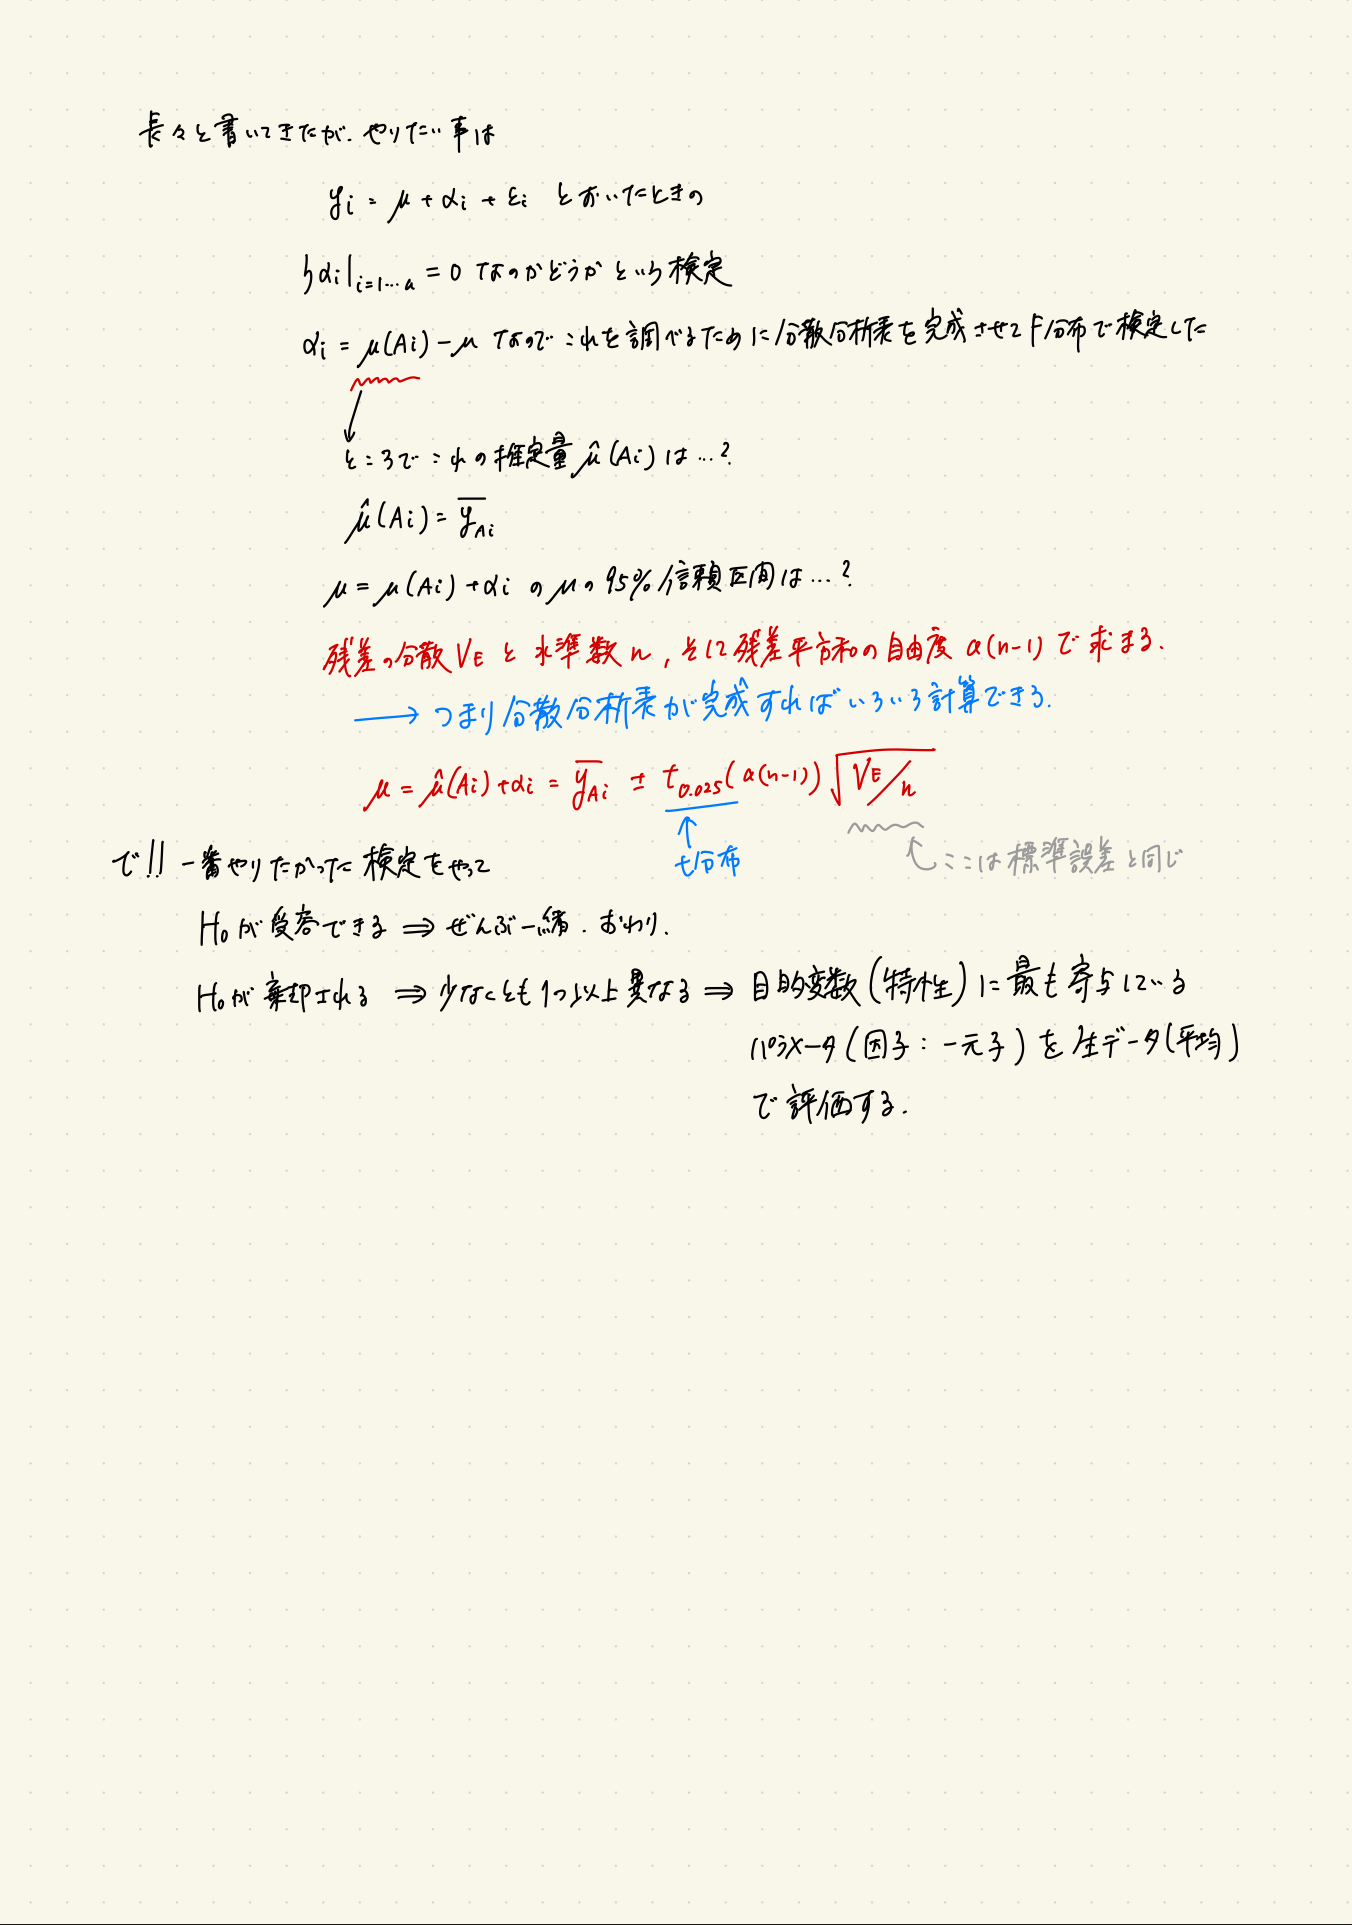 長々と書いてきたが. やりたい事は
yi = μ + αi + εi とおいたときの
αi|i=1…a = 0 なのかどうかという検定
αi = μ(Ai) − μ なので これを調べるために分散分析表を完成させてF分布で検定した
ところで これの推定量 μ̂(Ai) は…?
μ̂(Ai) = y̅Ai
μ = μ(Ai) + αi の μの 95% 信頼区間は…?
残差の分散 VE と 水準数 n, そして残差平方和の自由度 a(n-1) で求まる.
→ つまり分散分析表が完成すればいろいろ計算できる.
μ = μ̂(Ai) + αi = y̅Ai ± t0.025(a(n-1)) √VE/n
t分布
ここは標準誤差と同じ
で!! 一番やりたかった検定をやって
H0が受容できる ⇒ ぜんぶ一緒. おわり.
H0が棄却される ⇒ 少なくとも1つ以上異なる ⇒ 目的変数(特性)に最も寄与している
パラメータ(因子:一元子)を生データ(平均)
で評価する.